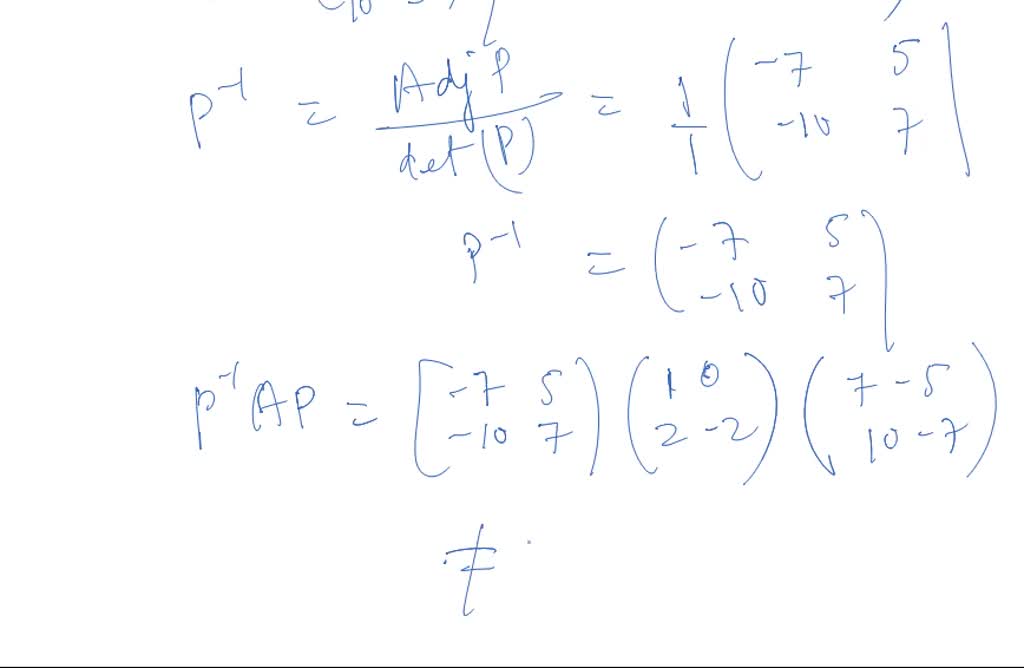 P⁻¹ = Adj P / det(P) = 1/1 ( -7 5 ; -10 7 )
P⁻¹ = ( -7 5 ; -10 7 )
P⁻¹AP = [ -7 5 ; -10 7 ) ( 1 0 ; 2 -2 ) ( 7 -5 ; 10 -7 )
≠